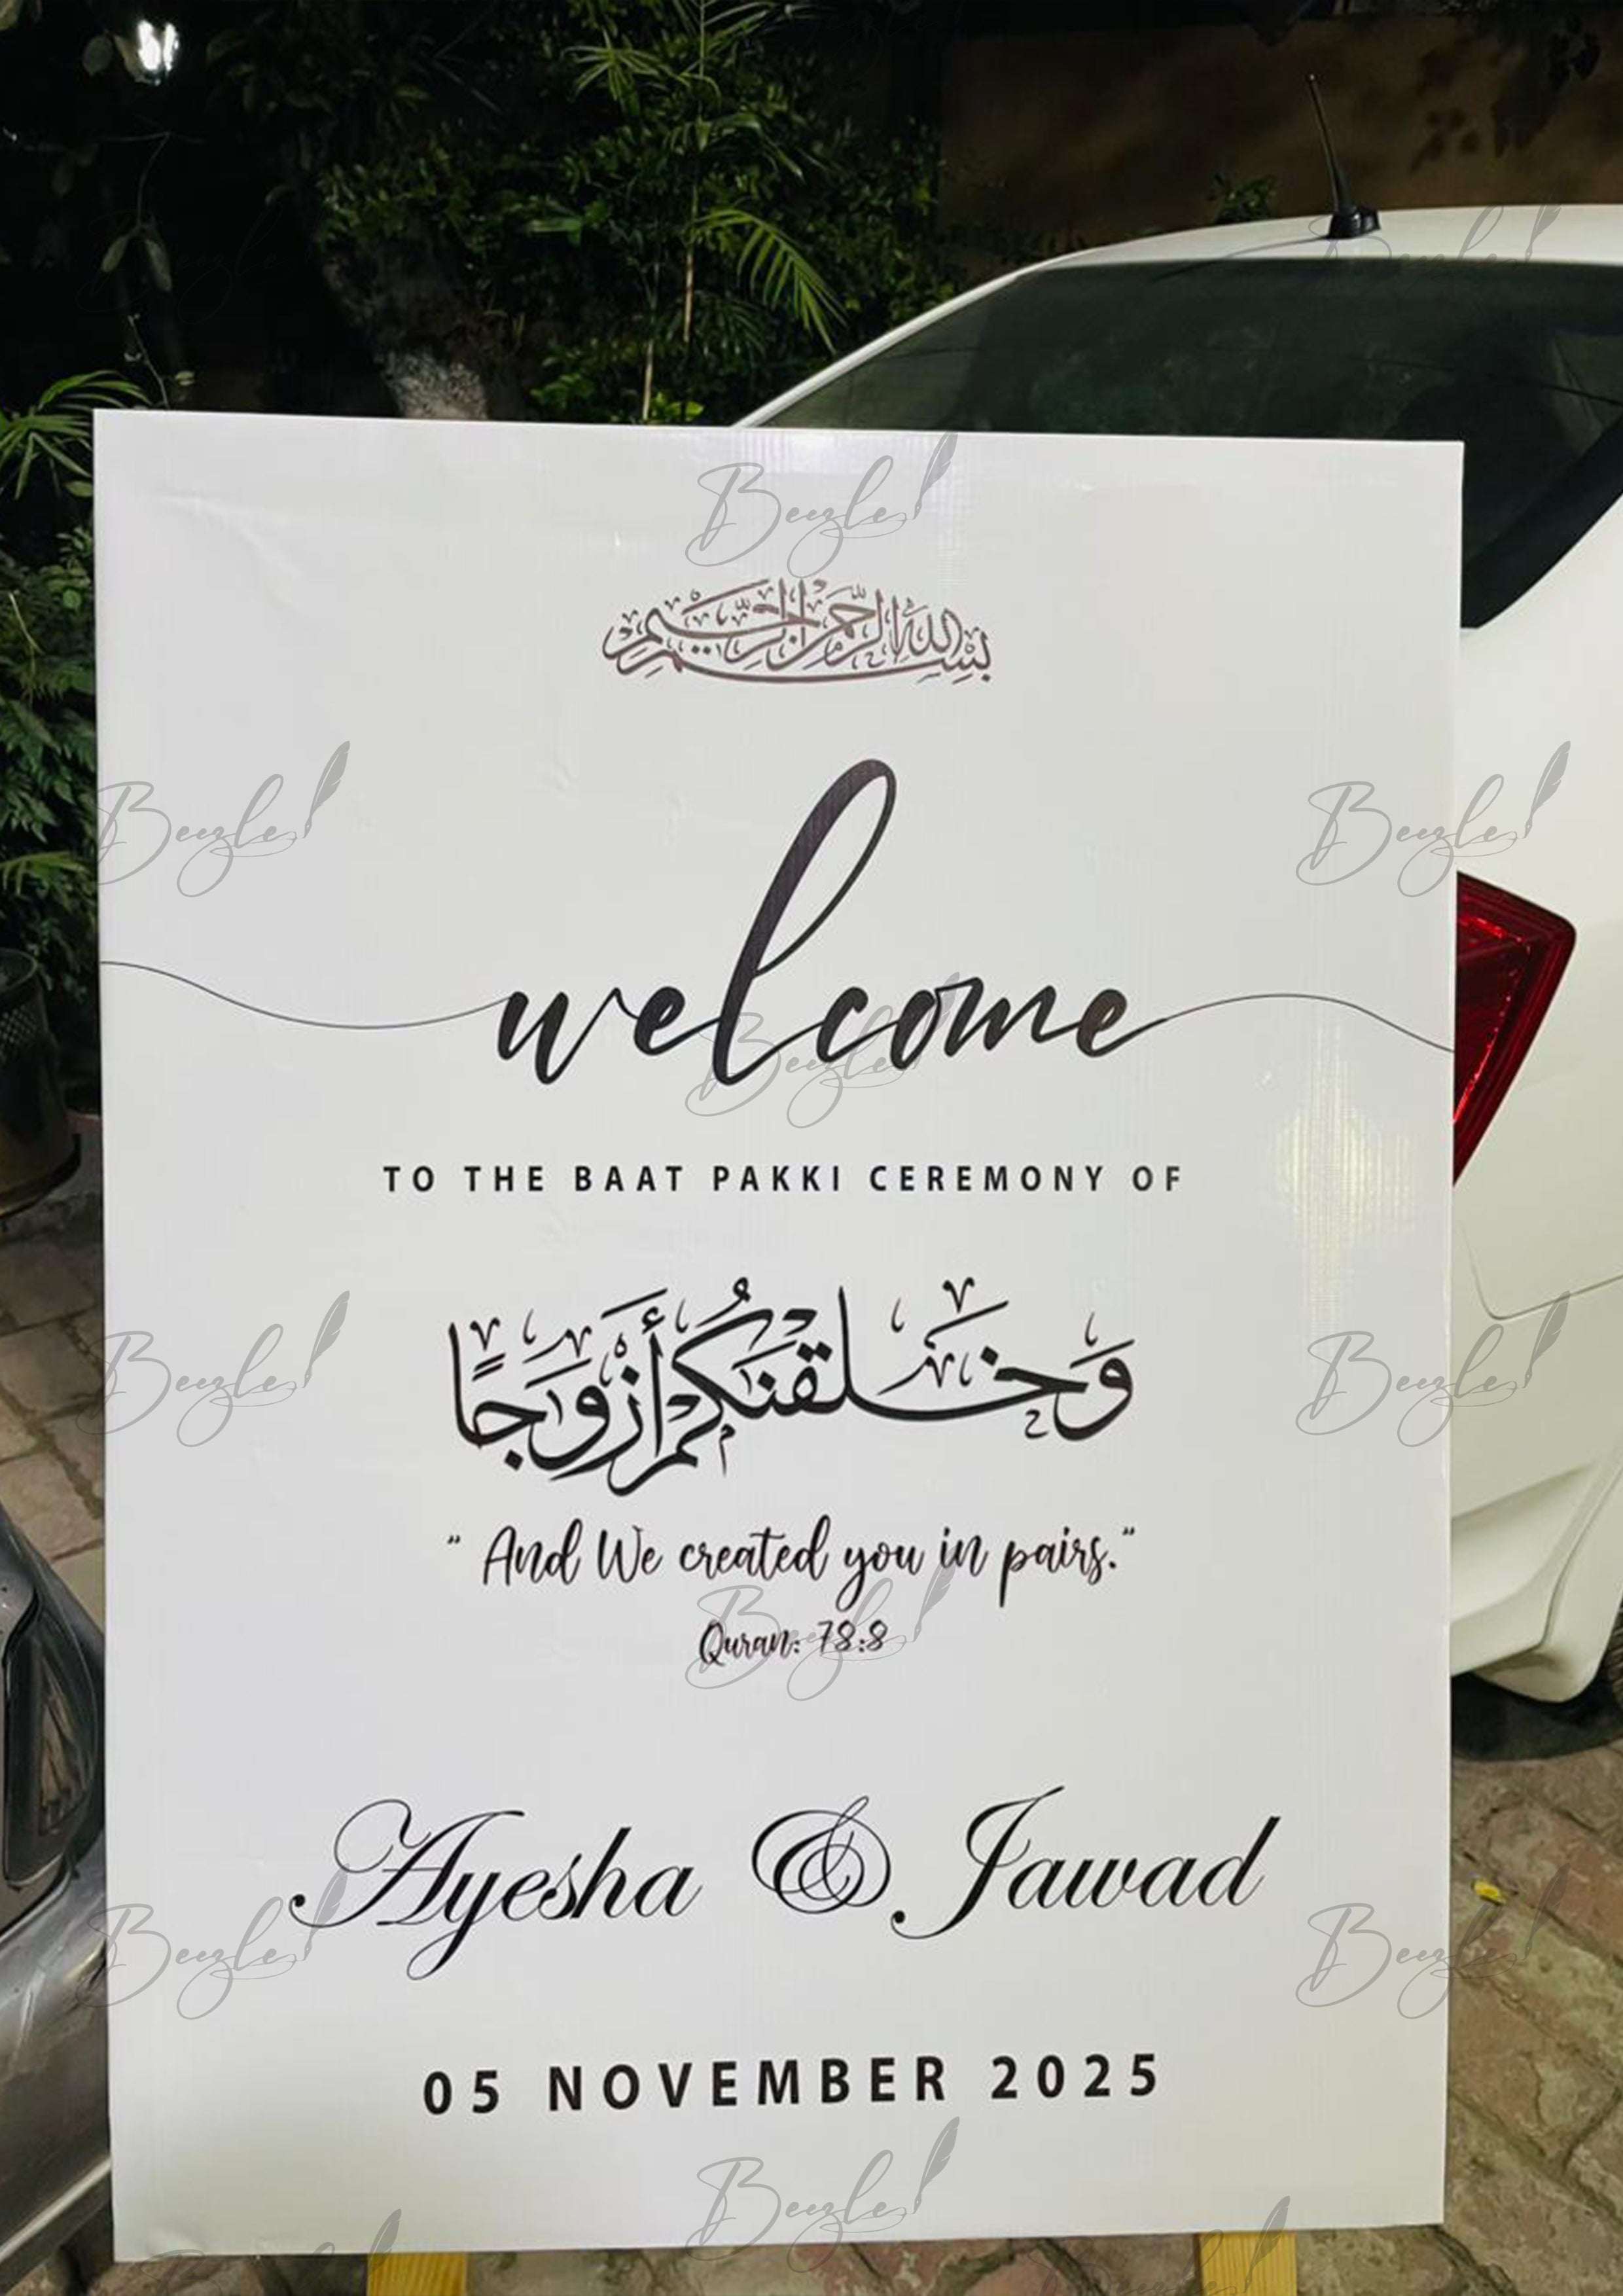 بِسْمِ اللَّهِ الرَّحْمَٰنِ الرَّحِيمِ
welcome
TO THE BAAT PAKKI CEREMONY OF
وَخَلَقْنَٰكُمْ أَزْوَٰجًا
" And We created you in pairs."
Quran: 78:8
Ayesha & Jawad
05 NOVEMBER 2025
Beezle